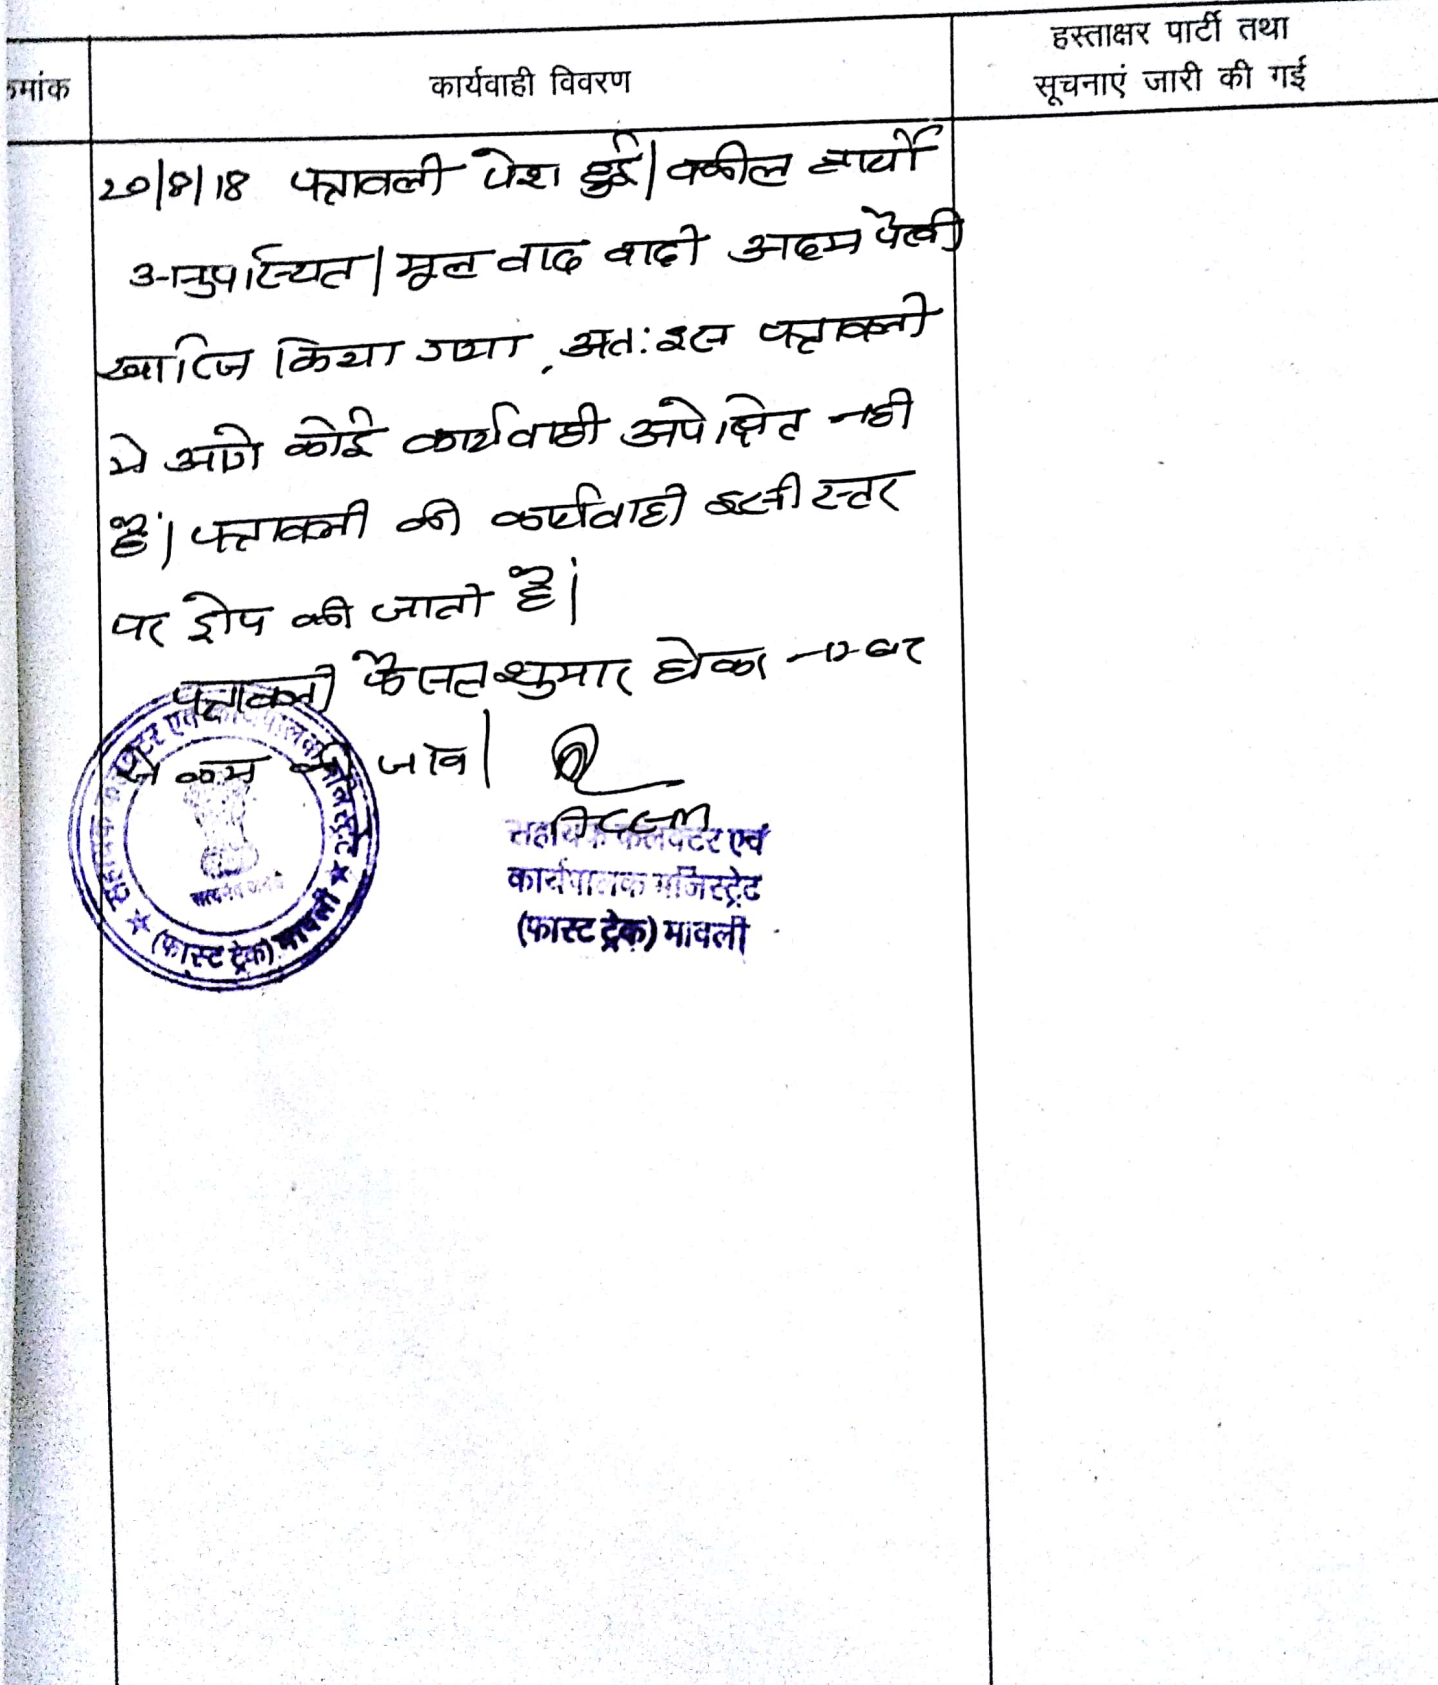 क्रमांक
कार्यवाही विवरण
हस्ताक्षर पार्टी तथा
सूचनाएं जारी की गई
20/8/18 पत्रावली पेश हुई। वकील प्रार्थी
अनुपस्थित। मूल वाद वादी अदम पैरवी
खारिज किया गया, अतः इस पत्रावली
मे आगे कोई कार्यवाही अपेक्षित नही
है। पत्रावली की कार्यवाही इसी स्तर
पर ड्रोप की जाती है।
पत्रावली फैसल शुमार होकर नम्बर
से कम की जावे।
सहायक कलक्टर एवं
कार्यपालक मजिस्ट्रेट
(फास्ट ट्रेक) मावली
सहायक कलक्टर एवं कार्यपालक मजिस्ट्रेट
सत्यमेव जयते
★ (फास्ट ट्रेक) मावली ★